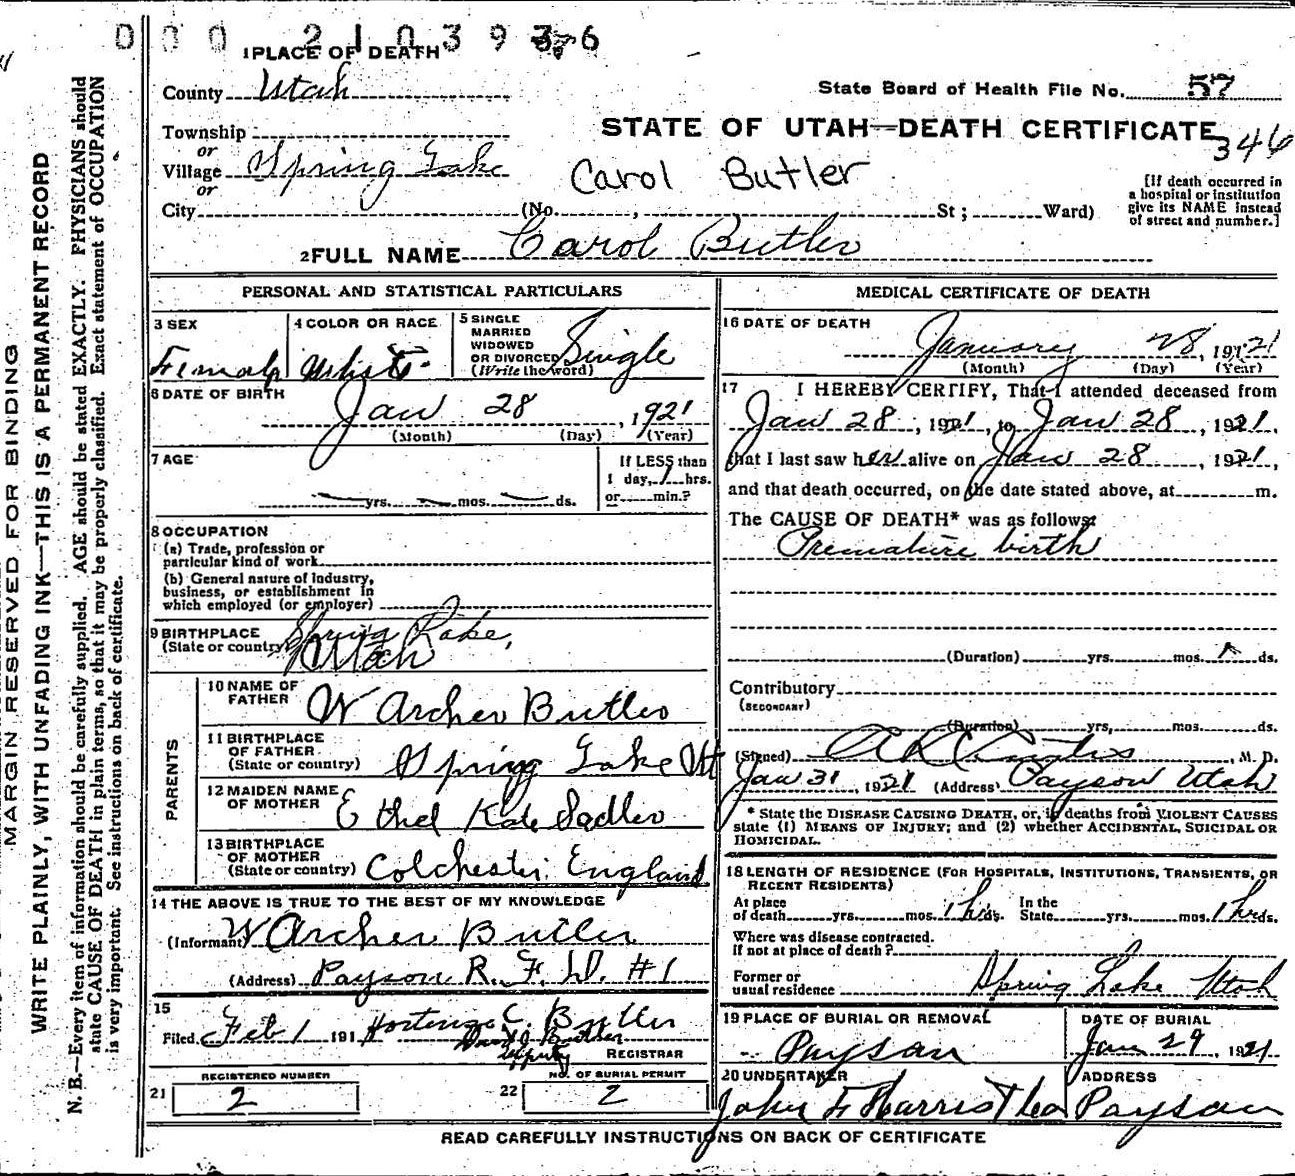 000 2103936
1 PLACE OF DEATH
County Utah
State Board of Health File No. 57
Township
or
STATE OF UTAH—DEATH CERTIFICATE
346
Village Spring Lake
or
Carol Butler
City (No. , St ; Ward)
[If death occurred in
a hospital or institution
give its NAME instead
of street and number.]
2 FULL NAME Carol Butler
PERSONAL AND STATISTICAL PARTICULARS
3 SEX
Female
4 COLOR OR RACE
White
5 SINGLE
MARRIED
WIDOWED
OR DIVORCED
(Write the word)
Single
6 DATE OF BIRTH
Jan 28, 1921
(Month) (Day) (Year)
7 AGE
yrs. mos. ds.
If LESS than
1 day, 1 hrs.
or min.?
8 OCCUPATION
(a) Trade, profession or
particular kind of work
(b) General nature of industry,
business, or establishment in
which employed (or employer)
9 BIRTHPLACE
(State or country)
Spring Lake,
Utah
PARENTS
10 NAME OF
FATHER W Archer Butler
11 BIRTHPLACE
OF FATHER
(State or country) Spring Lake Ut
12 MAIDEN NAME
OF MOTHER Ethel Kate Sadler
13 BIRTHPLACE
OF MOTHER
(State or country) Colchester. England
14 THE ABOVE IS TRUE TO THE BEST OF MY KNOWLEDGE
(Informant W Archer Butler
(Address) Payson R. F. D. #1
15
Filed Feb 1 191 Hortense C. Butler
Butler
deputy REGISTRAR
REGISTERED NUMBER
21 2
NO. OF BURIAL PERMIT
22 2
MEDICAL CERTIFICATE OF DEATH
16 DATE OF DEATH
January 28, 1921
(Month) (Day) (Year)
17 I HEREBY CERTIFY, That I attended deceased from
Jan 28, 1921, to Jan 28, 1921,
that I last saw her alive on Jan 28, 1921,
and that death occurred, on the date stated above, at m.
The CAUSE OF DEATH* was as follows:
Premature birth
(Duration) yrs. mos. 1 ds.
Contributory
(SECONDARY)
(Duration) yrs. mos. ds.
(Signed) A L Curtis, M. D.
Jan 31, 1921 (Address) Payson Utah
* State the DISEASE CAUSING DEATH, or, in deaths from VIOLENT CAUSES
state (1) MEANS OF INJURY; and (2) whether ACCIDENTAL, SUICIDAL OR
HOMICIDAL.
18 LENGTH OF RESIDENCE (FOR HOSPITALS, INSTITUTIONS, TRANSIENTS, OR
RECENT RESIDENTS)
At place
of death yrs. mos. 1 hr ds.
In the
State yrs. mos. 1 hr ds.
Where was disease contracted.
If not at place of death?
Former or
usual residence Spring Lake Utah
19 PLACE OF BURIAL OR REMOVAL
Payson
DATE OF BURIAL
Jan 29, 1921
20 UNDERTAKER
John F Harris
ADDRESS
Payson
READ CAREFULLY INSTRUCTIONS ON BACK OF CERTIFICATE
MARGIN RESERVED FOR BINDING
WRITE PLAINLY, WITH UNFADING INK—THIS IS A PERMANENT RECORD
N. B.—Every item of information should be carefully supplied. AGE should be stated EXACTLY. PHYSICIANS should
state CAUSE OF DEATH in plain terms, so that it may be properly classified. Exact statement of OCCUPATION
is very important. See instructions on back of certificate.